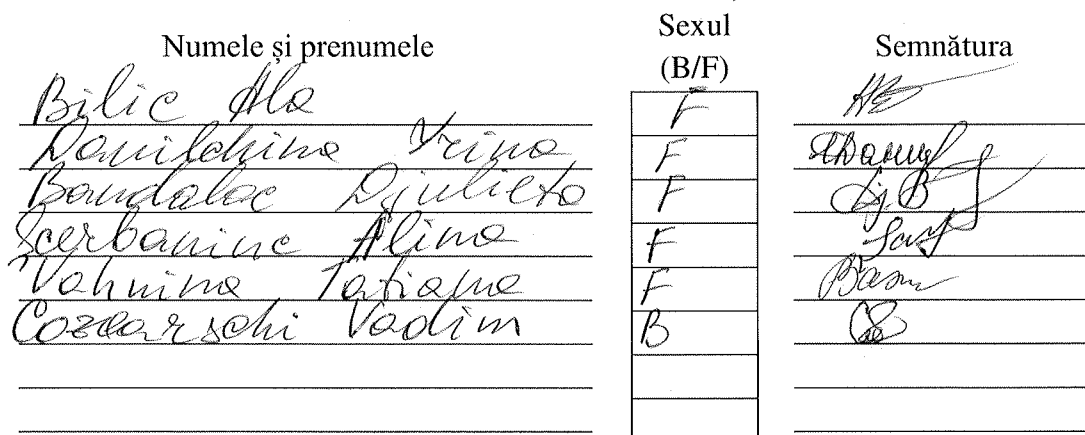 Numele și prenumele Sexul (B/F) Semnătura
Bilic Ala F
Danilchina Irina F
Bandalac Djulieta F
Scerbaninc Alina F
Vahnina Tatiana F
Cozearschi Vadim B